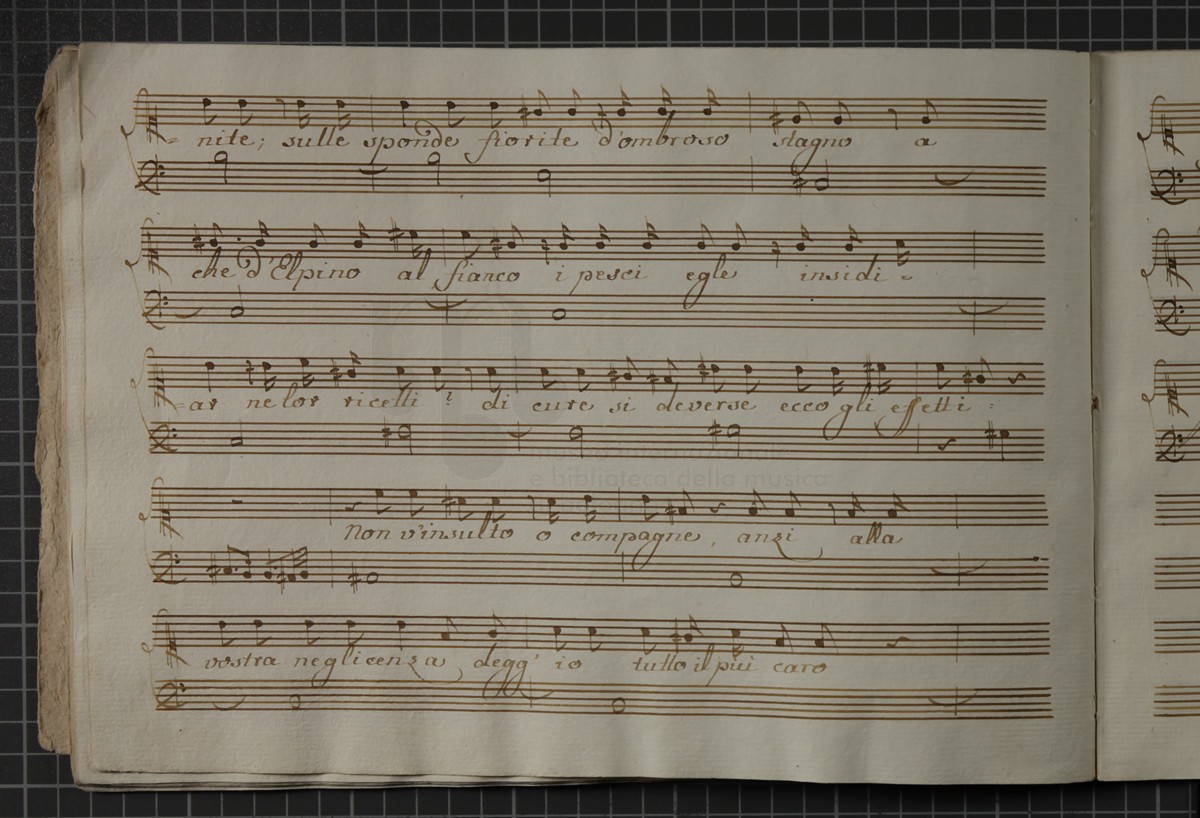 = nite; sulle sponde fiorite d'ombroso stagno a
che d'Elpino al fianco i pesci egle insidi =
= ar ne lor ricetti? di cure si deverse ecco gli effetti:
museo internazionale
e biblioteca della musica
Non v'insulto o compagne, anzi alla
vostra neglicenza degg' io tutto il più caro